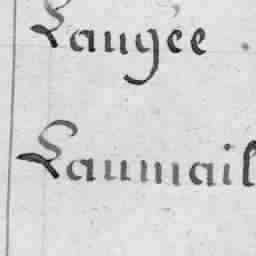 Laugée
Laumail